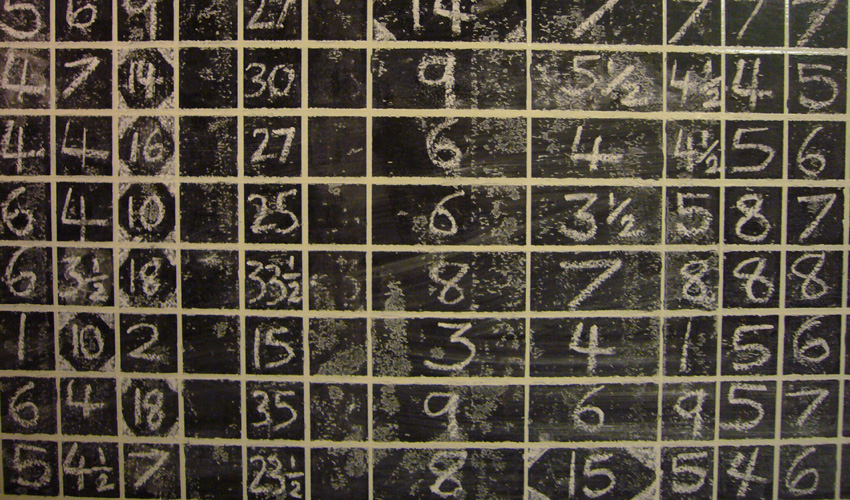 5 6 9 27 14 7 7 7 7
4 7 14 30 9 5½ 4½ 4 5
4 4 16 27 6 4 4½ 5 6
6 4 10 25 6 3½ 5 8 7
6 3½ 18 33½ 8 7 8 8 8
1 10 2 15 3 4 1 5 6
6 4 18 35 9 6 9 5 7
5 4½ 7 23½ 8 15 5 4 6